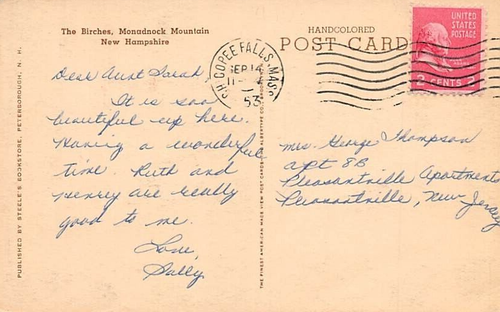 The Birches, Monadnock Mountain
New Hampshire
HANDCOLORED
POST CARD
UNITED
STATES
POSTAGE
2 CENTS 2
CHICOPEE FALLS, MASS.
SEP 14
1953
Dear Aunt Sarah,
It is soo
beautiful up here.
Having a wonderful
time. Ruth and
Henry are really
good to me.
Love,
Sally
Mrs. George Thompson
apt 8B
Pleasantville Apartments
Pleasantville, New Jersey
PUBLISHED BY STEELE'S BOOKSTORE, PETERBOROUGH, N. H.
THE FINEST AMERICAN MADE VIEW POST CARDS ALBERTYPE CO.